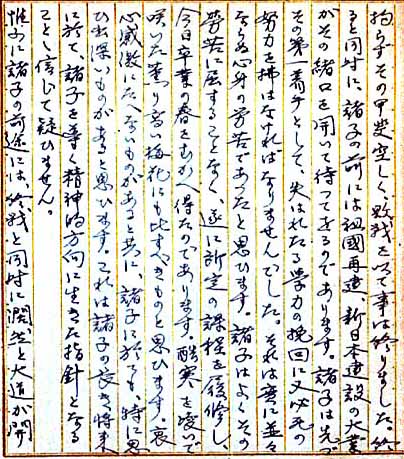 拘らずその甲斐空しく、敗戦を以て事は終りました。終
ると同時に、諸子の前には祖國再建、新日本建設の大業
がその緒口を開いて待つてをるのであります。諸子は先づ
その第一着手として、失はれたる学力の挽回に又必死の
努力を拂はなければなりませんでした。それは実に並々
ならぬ心身の労苦であつたと思ひます。諸子はよくその
労苦に屈することなく、遂に所定の課程を履修し、
今日卒業の春をむかへ得たのであります。酷寒を凌いで
咲いた薫り高い梅花にも比すべきものと思ひます。哀
心感激にたへないものがあると共に、諸子に於ても、特に思
ひ出深いものがあると思ひます。これは諸子の長き将来
に於て、諸子を導く精神的方向に生きた指針となる
こと信じて疑ひません。
惟ふに諸子の前途には、終戦と同時に濶然と大道が開